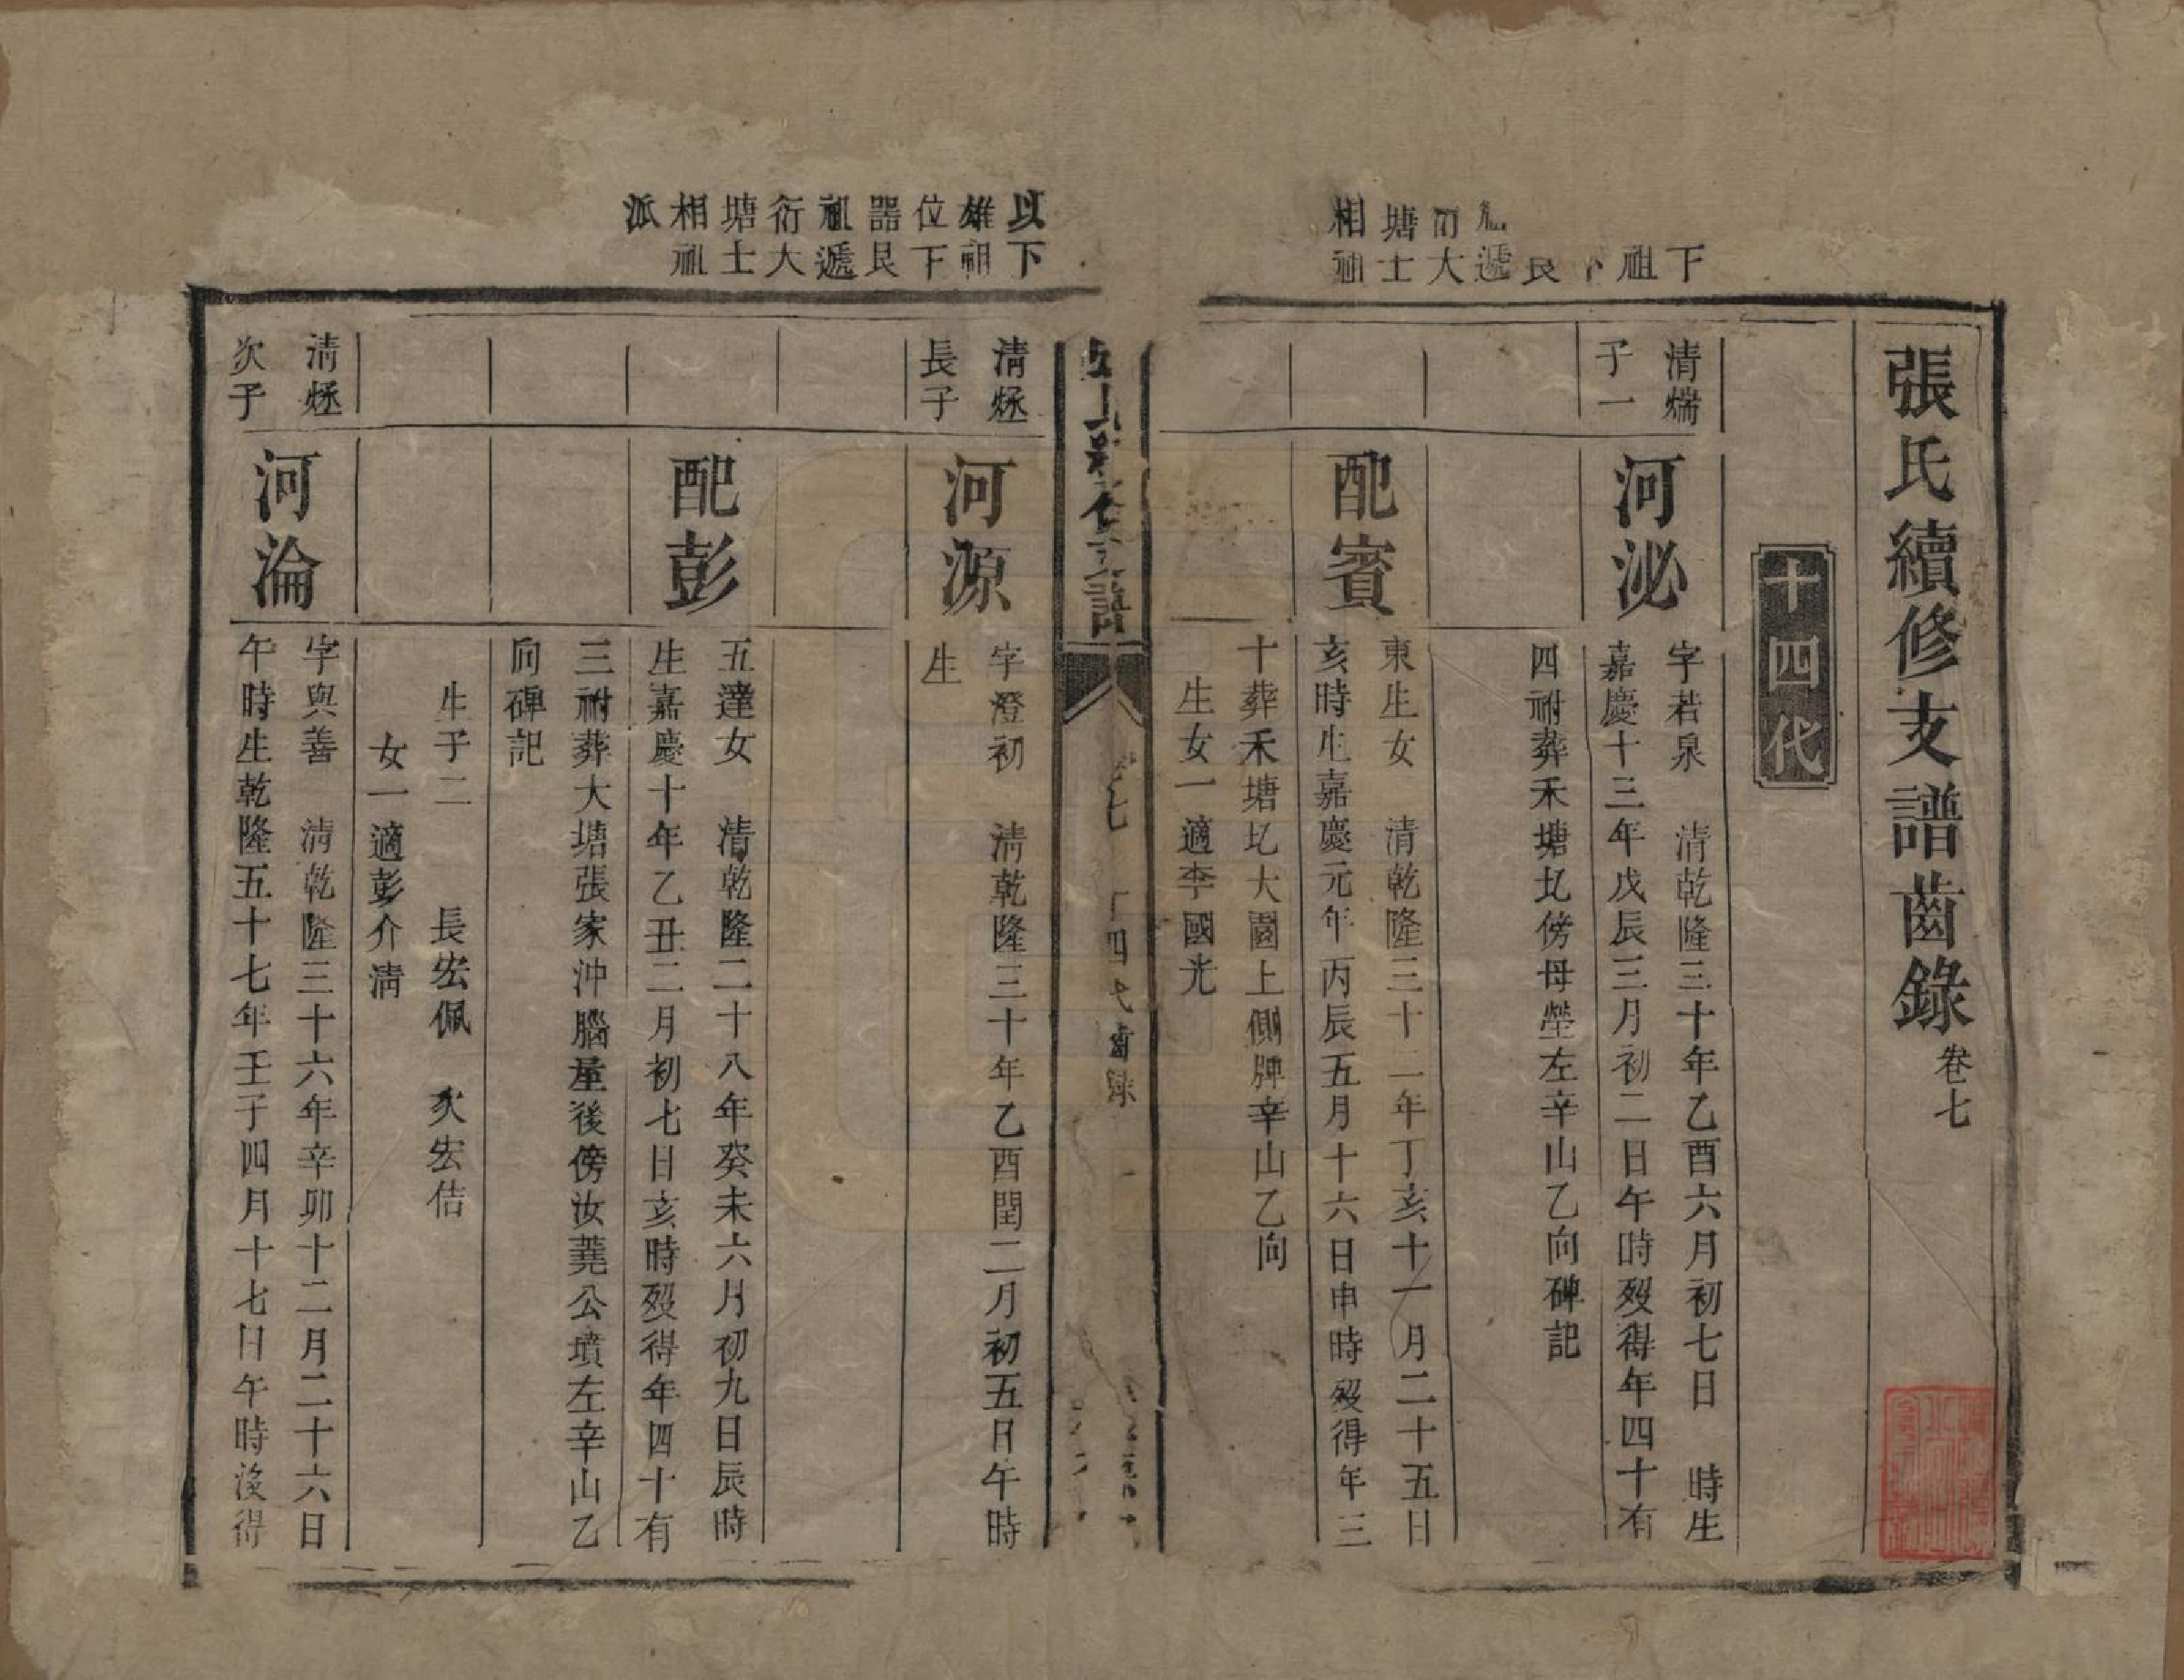 張氏續修支譜齒錄 卷七
十四代
下
祖
下
良
遞
衍大
塘士
相祖
清煓
子一
河泌
字若泉 清乾隆三十年乙酉六月初七日 時生
嘉慶十三年戊辰三月初二日午時歿得年四十有
四祔葬禾塘圠傍母塋左辛山乙向碑記
配賓
東生女 清乾隆三十二年丁亥十一月二十五日
亥時生嘉慶元年丙辰五月十六日申時歿得年三
十葬禾塘圠大園上側牌辛山乙向
生女一適李國光
譜
卷七 十四代齒錄 一
以下
雄祖
位下
器良
祖遞
衍大
塘士
相祖
派
清烝
長子
河源
字澄初 清乾隆三十年乙酉閏二月初五日午時
生
配彭
五達女 清乾隆二十八年癸未六月初九日辰時
生嘉慶十年乙丑二月初七日亥時歿得年四十有
三祔葬大塘張家沖腦𡉏後傍汝蕘公墳左辛山乙
向碑記
生子二 長宏佩 次宏佶
女一適彭介清
清烝
次子
河淪
字與善 清乾隆三十六年辛卯十二月二十六日
午時生乾隆五十七年壬子四月十七日午時没得